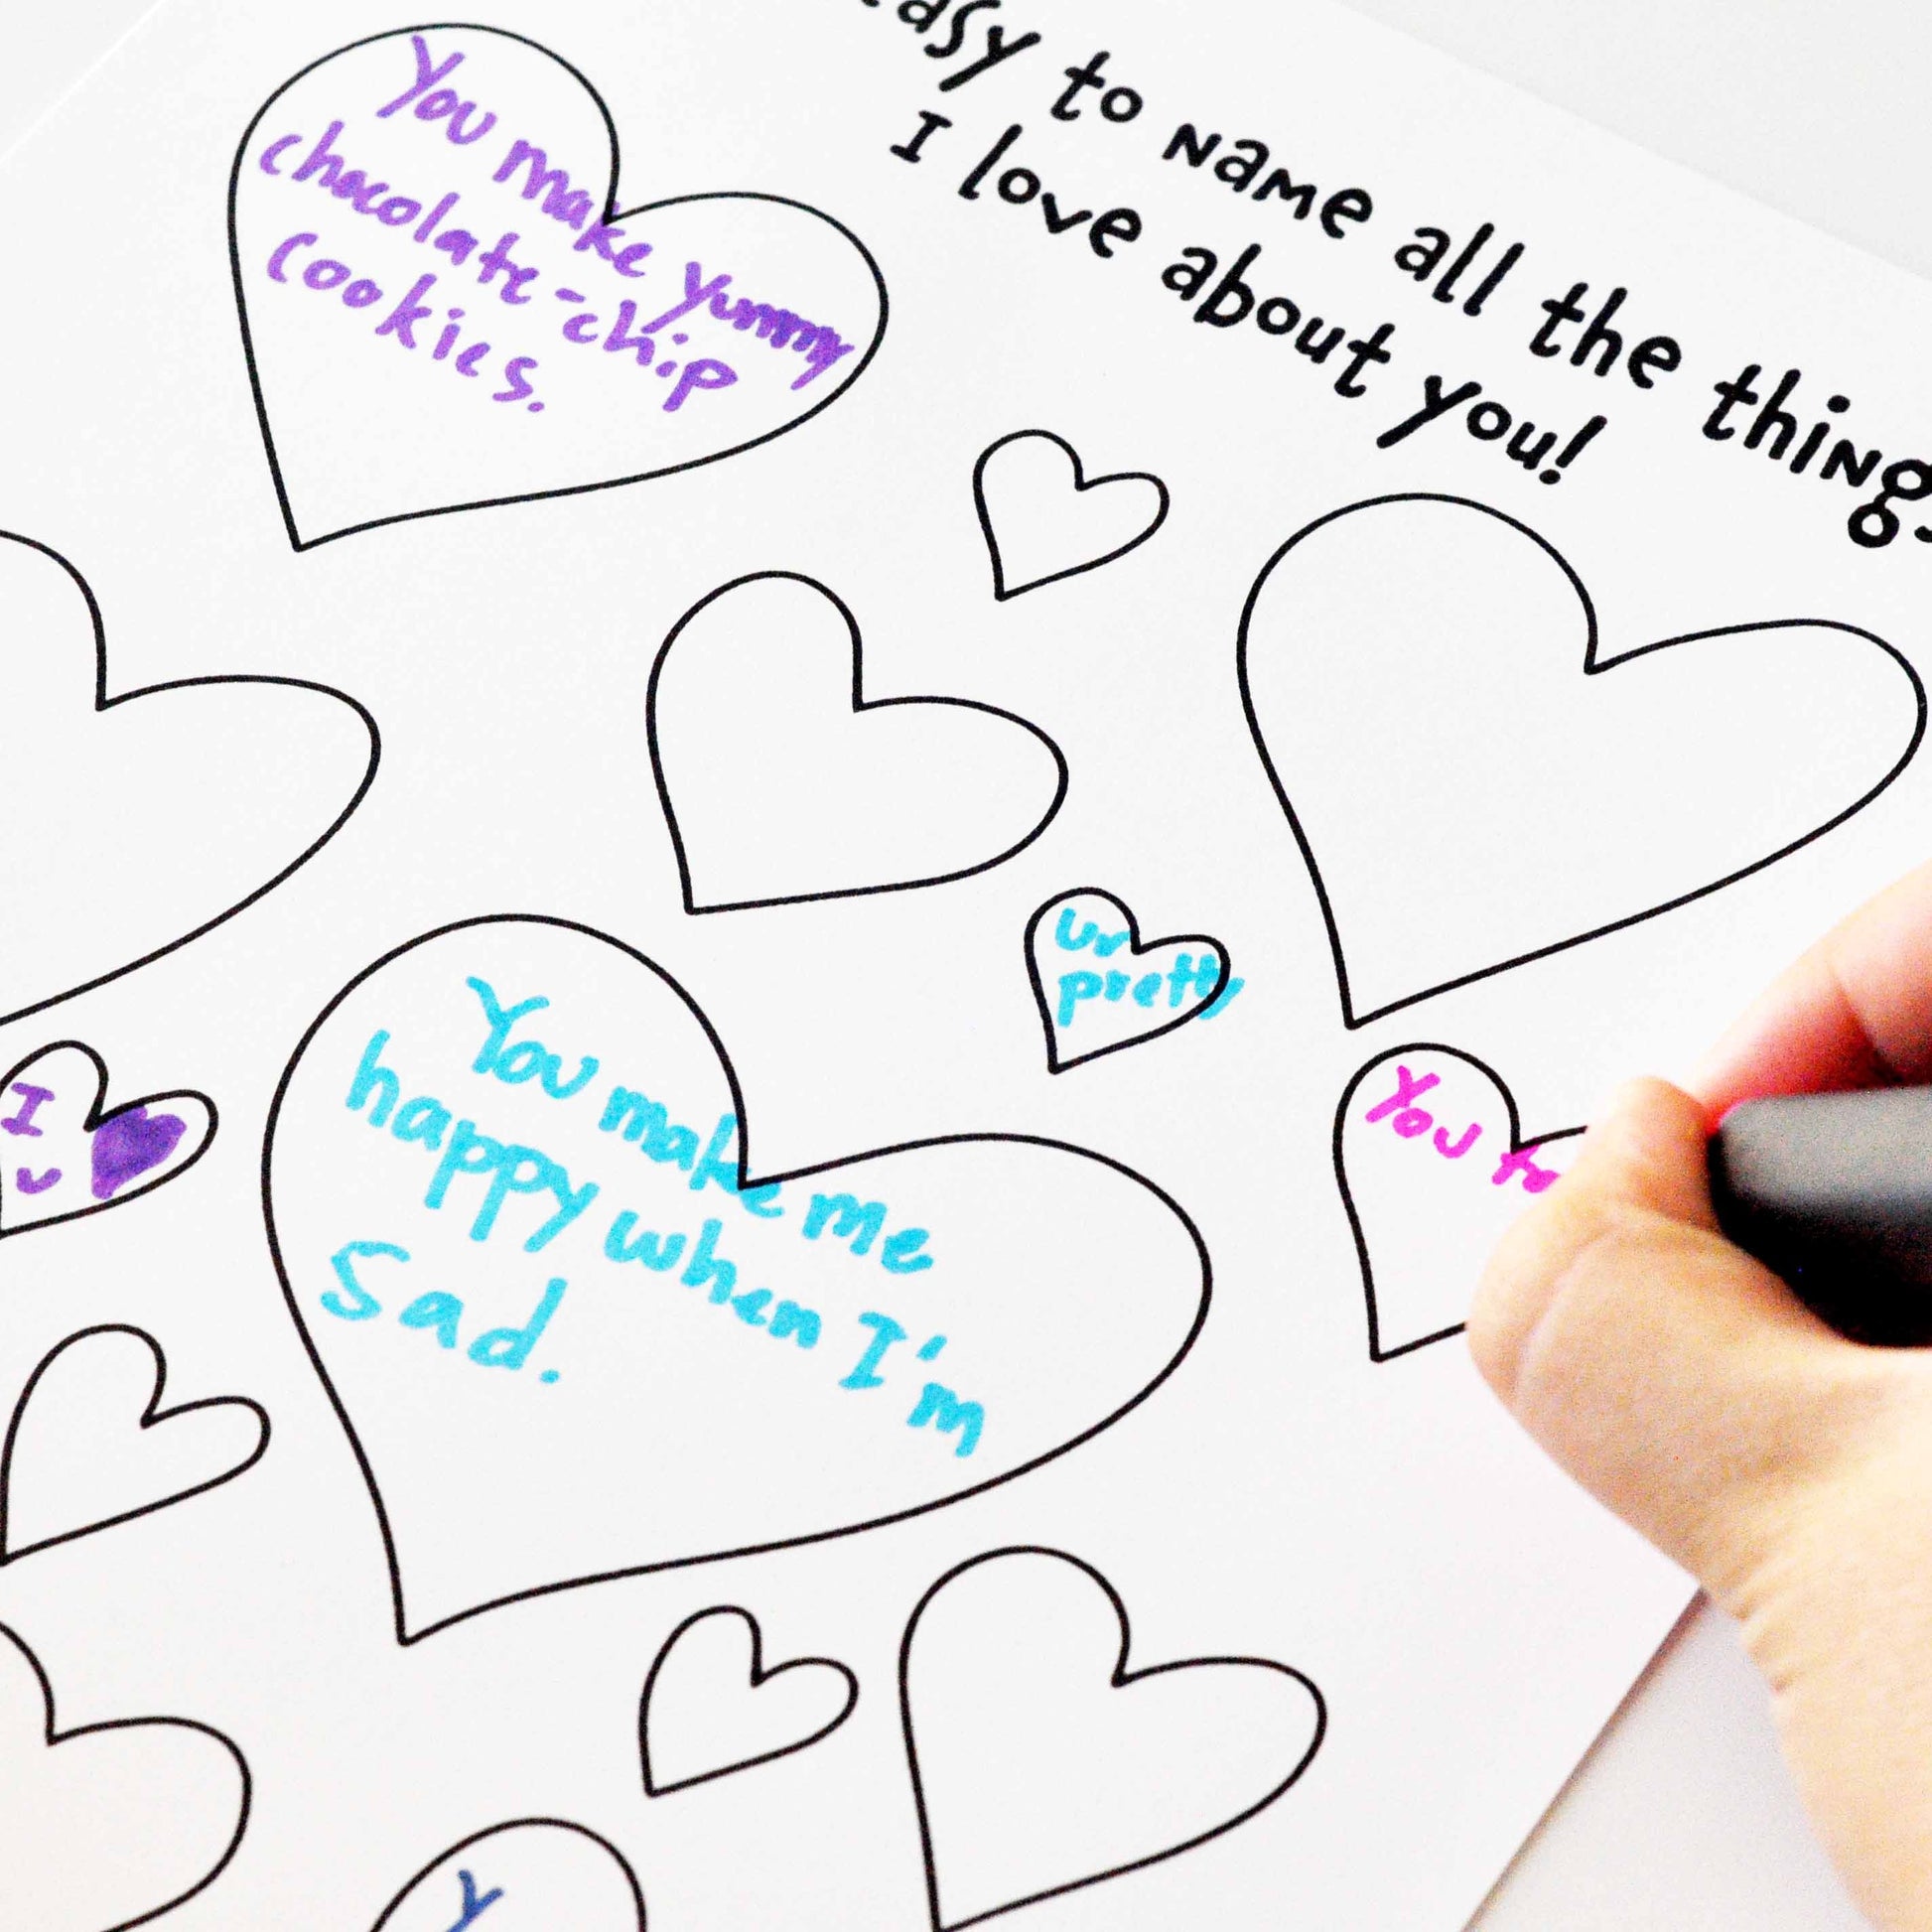 easy to name all the things
I love about you!
You make yummy
chocolate-chip
cookies.
ur
pretty
You make me
happy when I'm
sad.
I
u
You
Y